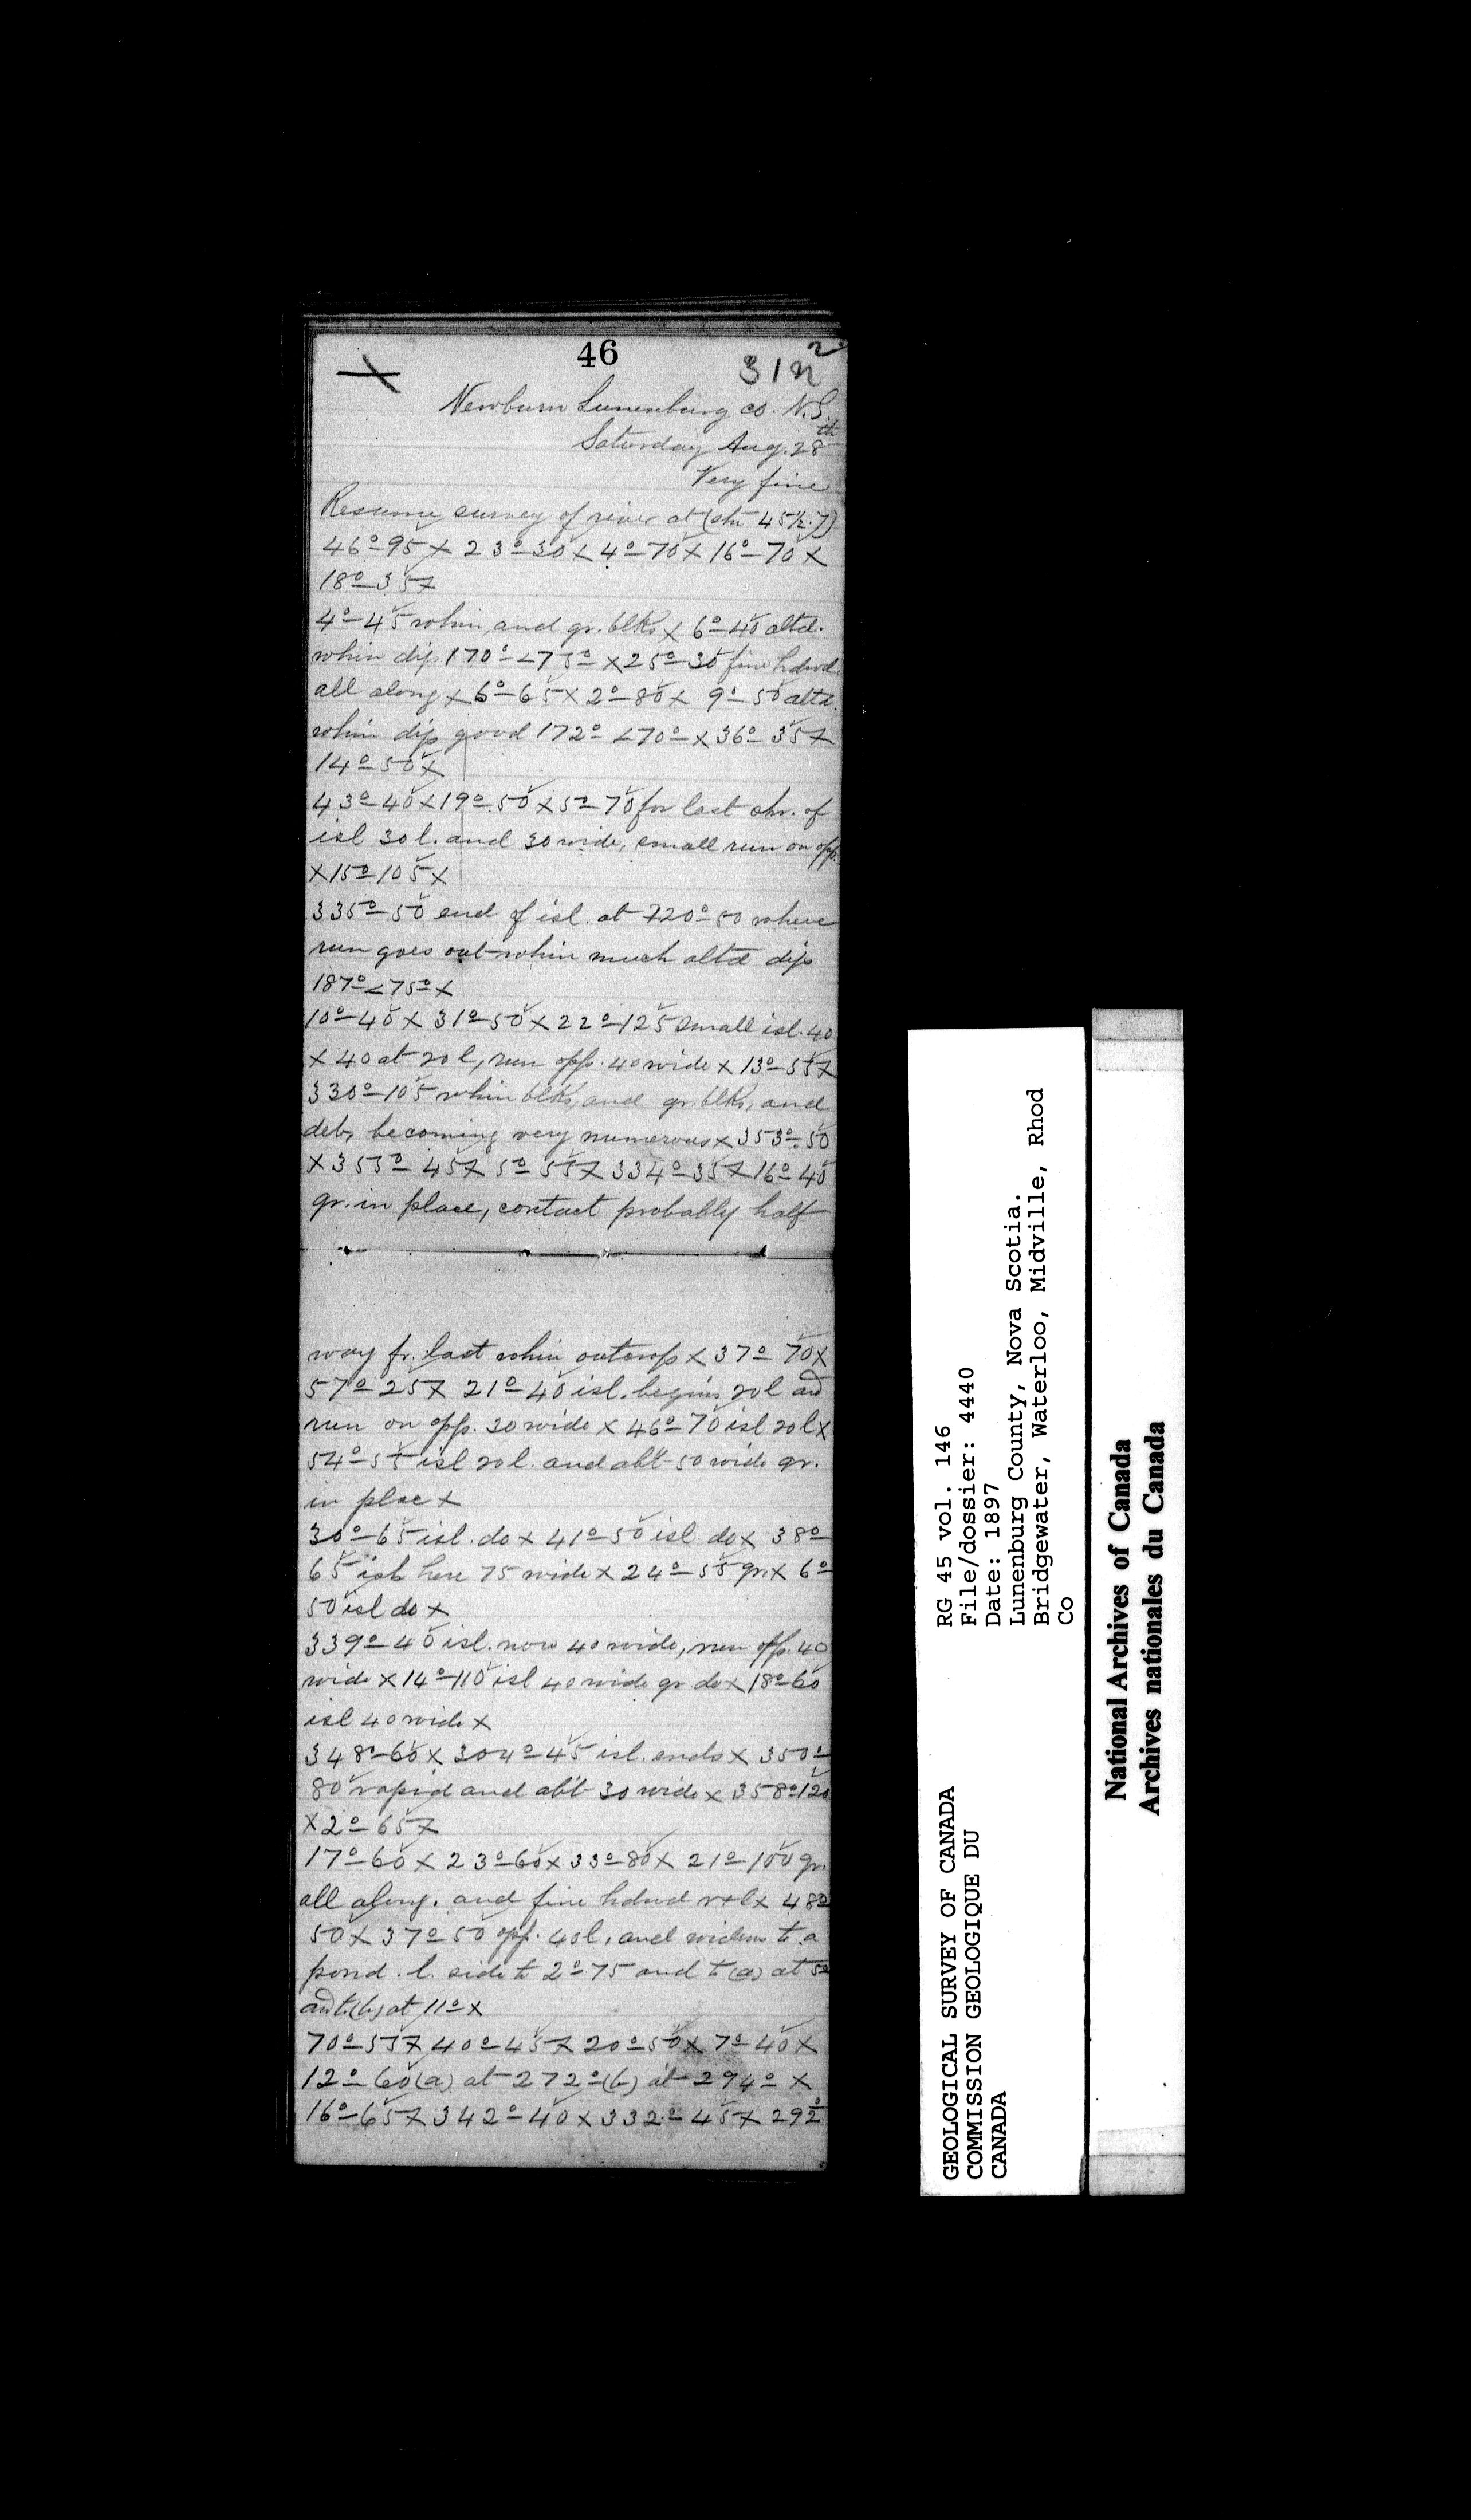 46
31n²
Newburn Lunenburg co. N.S.
Saturday Aug. 28th
Very fine
Resume survey of river at (stn 45½.7)
46°–95 x 23°–30 x 4°–70 x 16°–70 x
18°–35 x
4°–45 whin, and gr. blks x 6°–40 altd.
whin dip 170° <75° x 25°–30 fine hdwd.
all along x 6°–65 x 2°–80 x 9°–50 altd.
whin dip good 172° <70° x 36°–35 x
14°–50 x
43°–40 x 19°–50 x 5°–70 for last chr. of
isl 30 l. and 30 wide, small run on opp.
x 15°–105 x
335°–50 end of isl. at 720°–50 where
run goes out whin much altd dip
187° <75° x
10°–40 x 31°–50 x 22°–125 small isl. 40
x 40 at 20 l, run opp. 40 wide x 13°–55 x
330°–105 whin blks, and gr. blks, and
deb, becoming very numerous x 353°–50
x 353°–45 x 5°–55 x 334°–35 x 16°–40
gr. in place, contact probably half
way fr. last whin outcrop x 37°–70 x
57°–25 x 21°–40 isl. begins 20 l and
run on opp. 30 wide x 46°–70 isl 20 l x
54°–55 isl 20 l. and abt 50 wide gr.
in plac x
30°–65 isl. do x 41°–50 isl do x 38°–
65 isl. here 75 wide x 24°–55 gr. x 6°–
50 isl do x
339°–40 isl. now 40 wide, run opp. 40
wide x 14°–110 isl 40 wide gr do x 18°–60
isl 40 wide x
348°–60 x 304°–45 isl. ends x 350°–
80 rapid and abt 30 wide x 358°–120
x 2°–65 x
17°–60 x 23°–60 x 33°–80 x 21°–100 gr.
all along. and fine hdwd r+l x 48°
50 x 37°–50 opp. 40 l, and widens to a
pond. l. side to 2°–75 and to (a) at 5°
and to (b) at 11° x
70°–55 x 40°–45 x 20°–50 x 7°–40 x
12°–60 (a) at 272° (b) at 294° x
16°–65 x 342°–40 x 332°–45 x 292°
RG 45 vol. 146
File/dossier: 4440
Date: 1897
Lunenburg County, Nova Scotia.
Bridgewater, Waterloo, Midville, Rhod
Co
GEOLOGICAL SURVEY OF CANADA
COMMISSION GEOLOGIQUE DU
CANADA
National Archives of Canada
Archives nationales du Canada